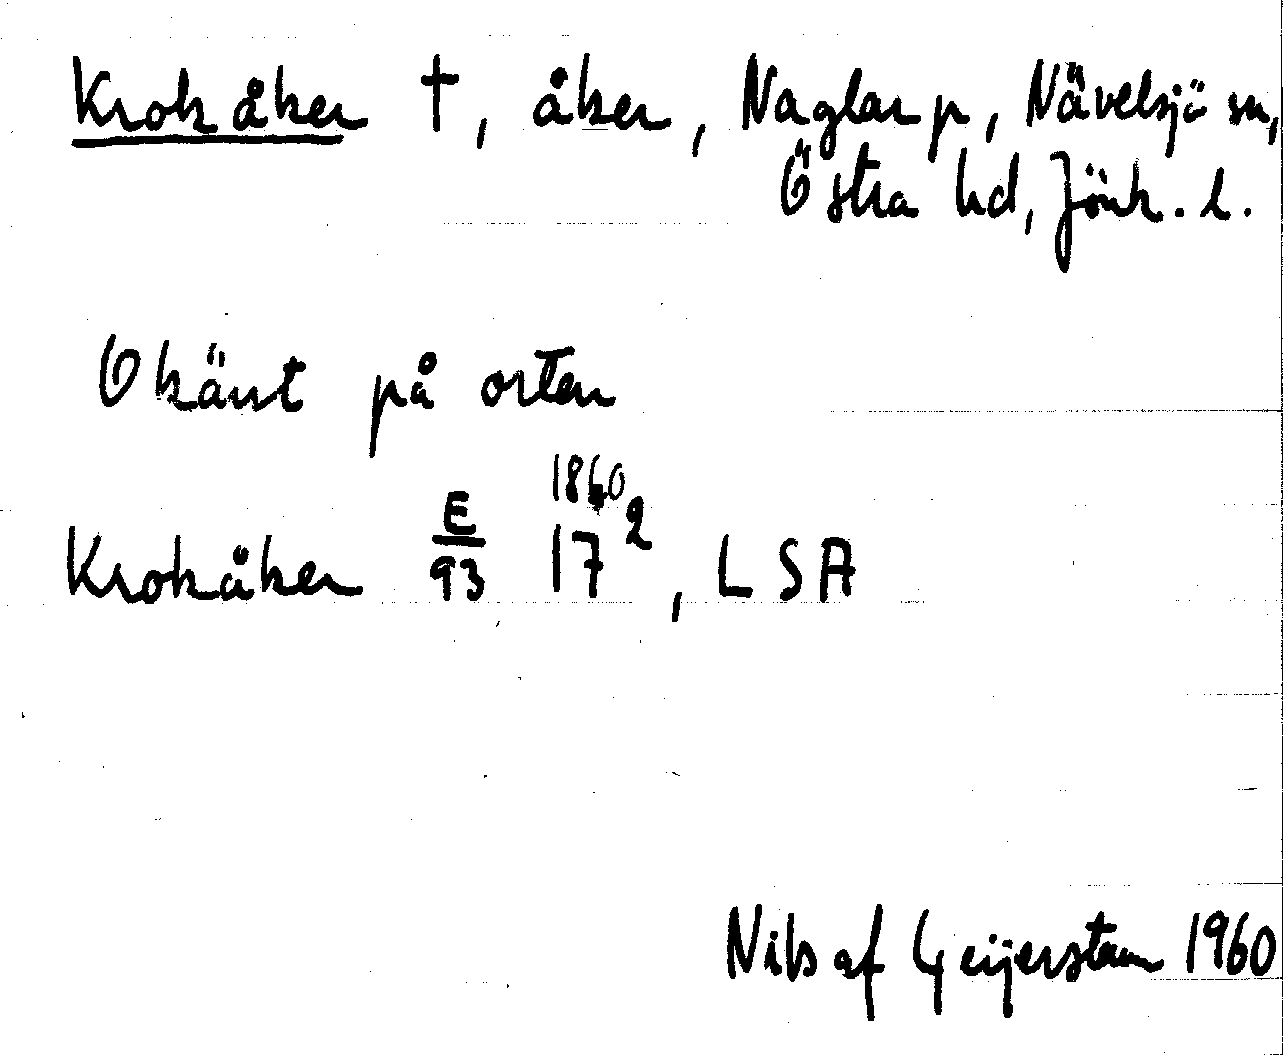 Krokåker †, åker, Naglarp, Nävelsjö sn,
Östra hd, Jönk. l.
Okänt på orten
1860
Krokåker E/93 17², LSA
Nils af Geijerstam 1960